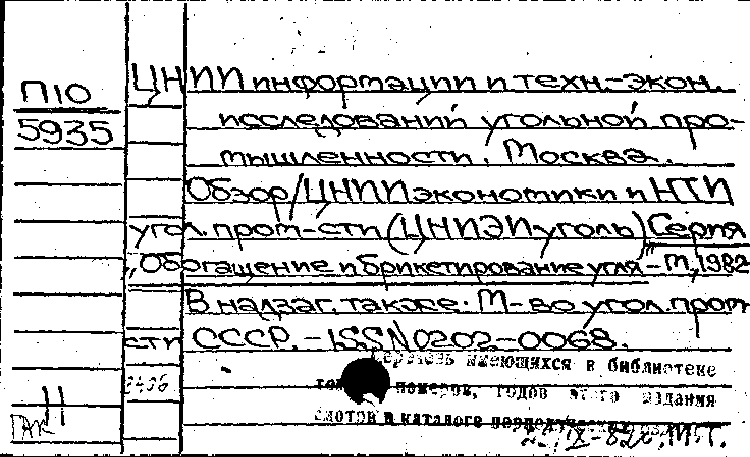 П10
5935
ЦНИИ информации и техн.-экон.
исследований угольной про-
мышленности. Москва.
Обзор/ЦНИИ экономики и НТИ
угол. пром-сти (ЦНИЭИуголь) Серия
„Обогащение и брикетирование угля" - М, 1982
В надзаг. также: М-во угол. пром
сти СССР. - ISSN 0202-0068.
Перечень имеющихся в библиотеке
номеров, годов этого издания
смотри в каталоге
3436
11
ГАК